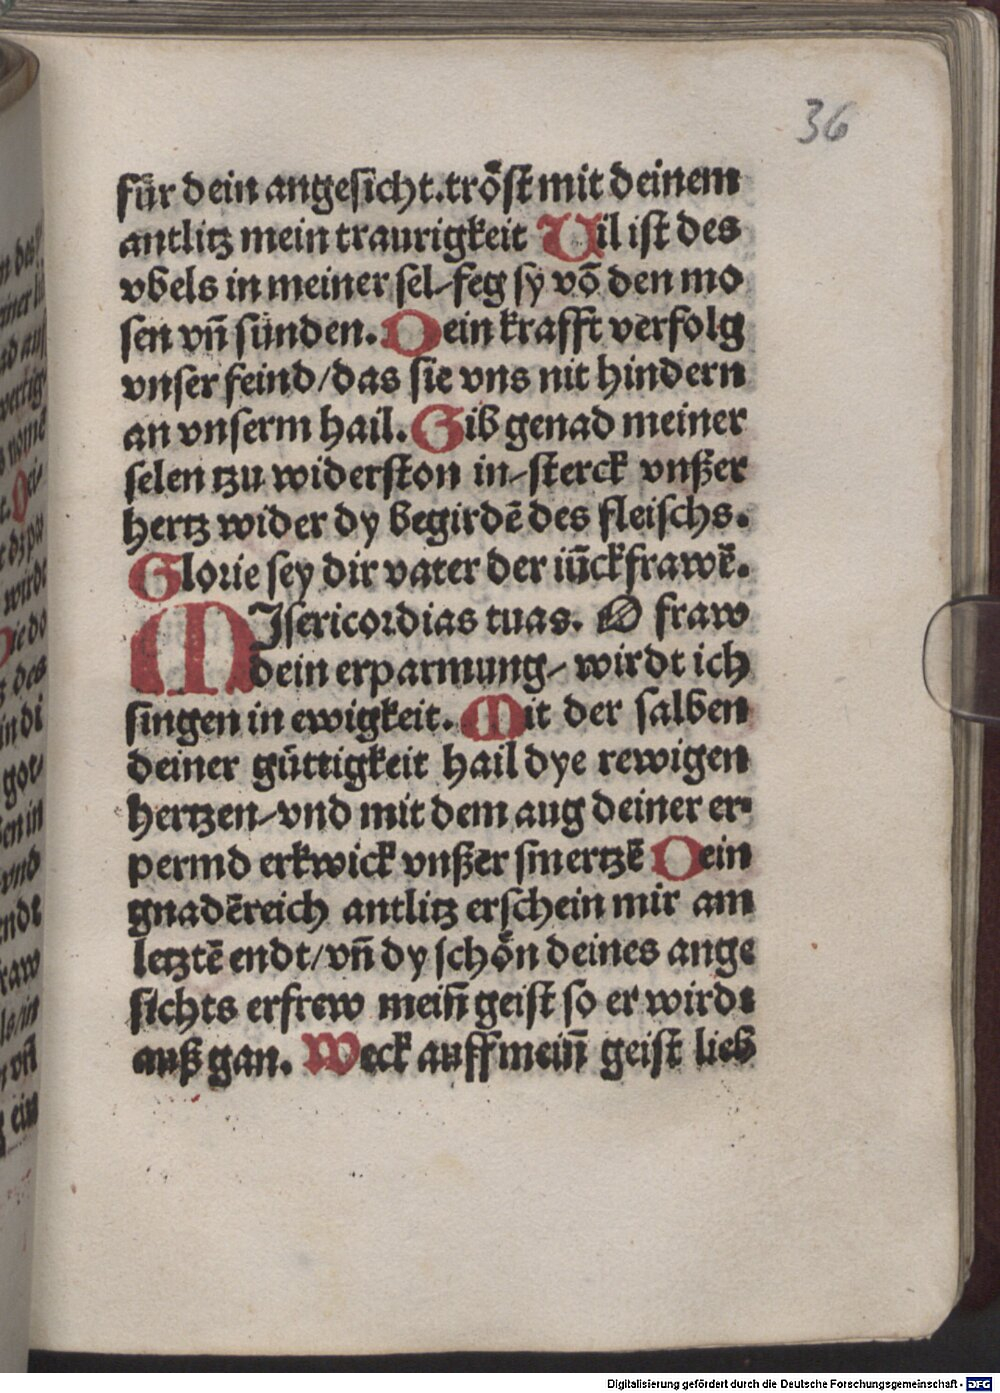 36
für dein angesicht.tröst mit deinem
antlitz mein traurigkeit Vil ist des
vbels in meiner sel-feg sy vō den mo
sen vn̄ sünden. Dein krafft verfolg
vnser feind/das sie vns nit hindern
an vnserm hail. Gib genad meiner
selen tzu widerston in-sterck vnßer
hertz wider dy begirdē des fleischs.
Glorie sey dir vater der iūckfrawē.
MIsericordias tuas. O fraw
dein erparmung-wirdt ich
singen in ewigkeit. Mit der salben
deiner güttigkeit hail dye rewigen
hertzen-vnd mit dem aug deiner er-
permd erkwick vnßer smertzē Dein
gnadēreich antlitz erschein mir am
letztē endt/vn̄ dy schön deines ange
sichts erfrew mein̄ geist so er wirdt
auß gan. Weck auff mein̄ geist lieb
Digitalisierung gefördert durch die Deutsche Forschungsgemeinschaft - DFG